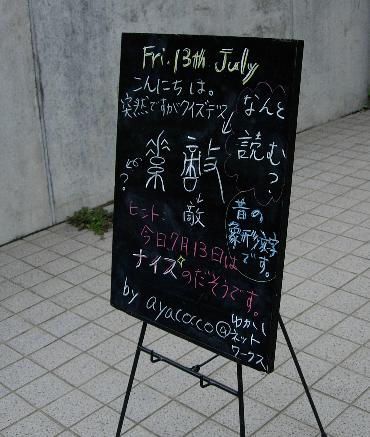 Fri. 13th July
こんにちは。
突然ですがクイズデス
なんと
読む
?
ヒント:
敵
昔の
象形文字
です。
今日7月13日は
ナイスのだそうです。
by ayacocco@ゆかしネットワークス